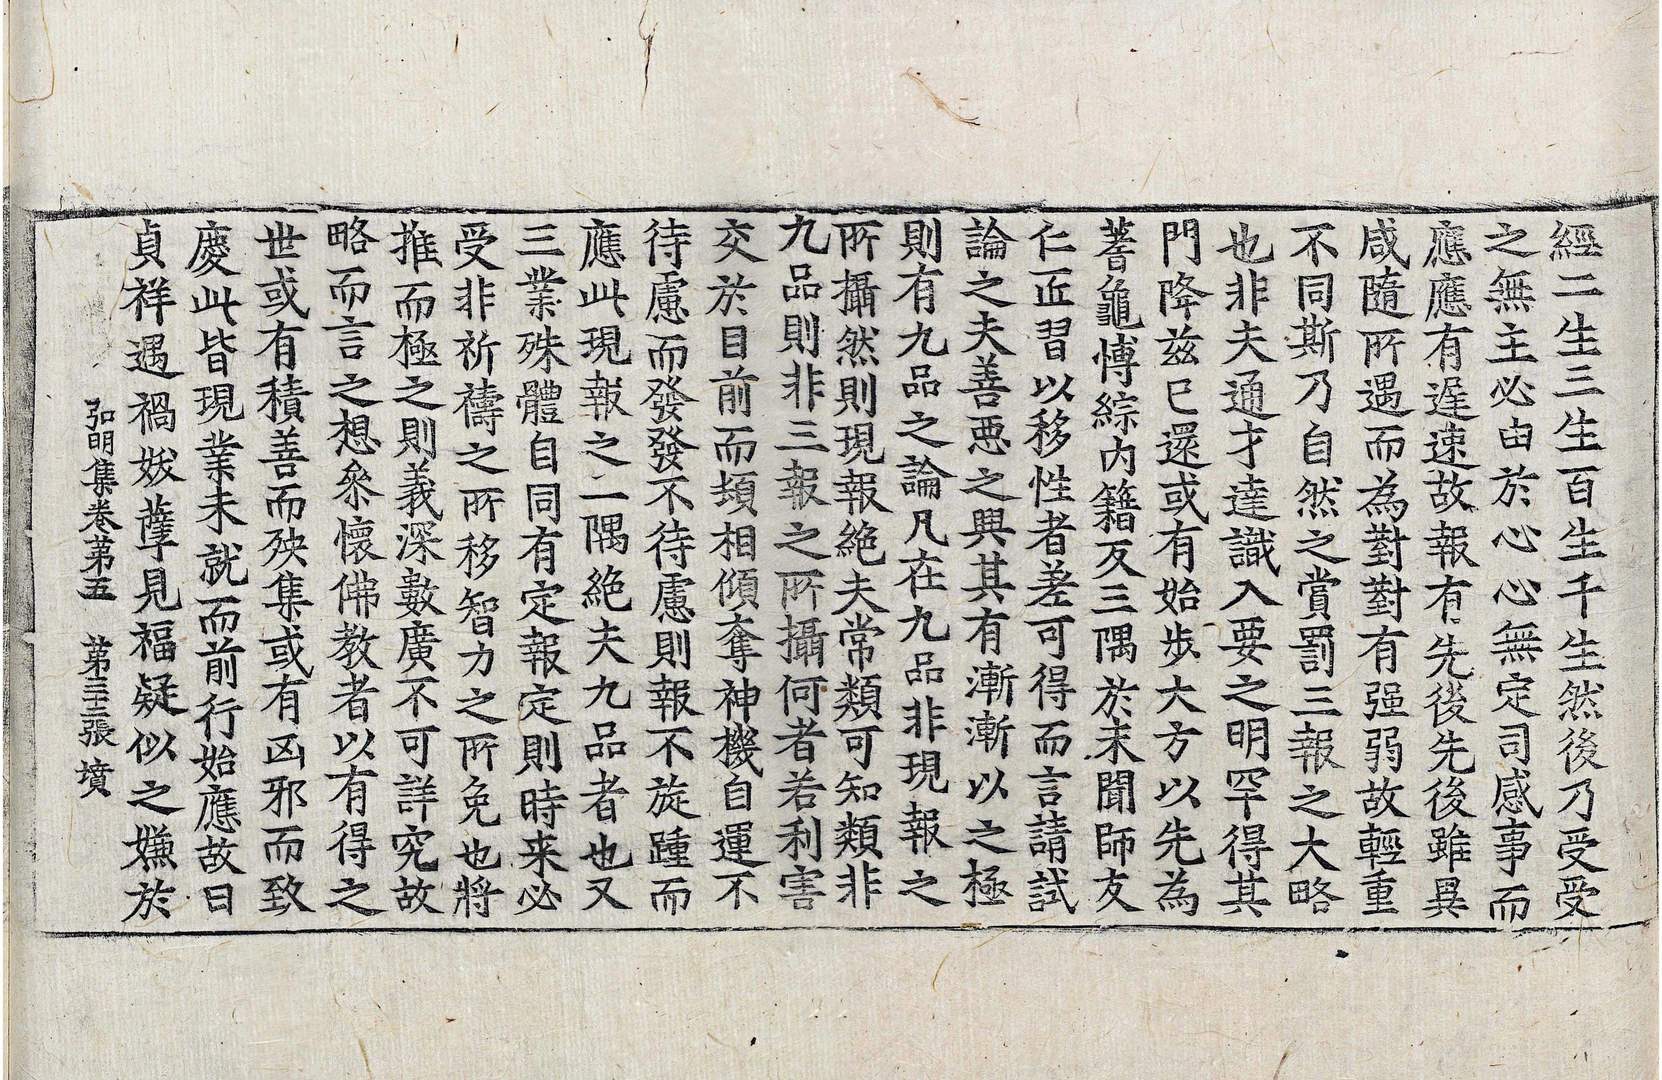 經二生三生百生千生然後乃受受
之無主必由於心心無定司感事而
應應有遲速故報有先後先後雖異
咸隨所遇而為對對有强弱故輕重
不同斯乃自然之賞罰三報之大略
也非夫通才達識入要之明罕得其
門降兹已還或有始步大方以先為
蓍龜博綜內籍反三隅於未聞師友
仁匠習以移性者差可得而言請試
論之夫善惡之興其有漸漸以之極
則有九品之論凡在九品非現報之
所攝然則現報絶夫常類可知類非
九品則非三報之所攝何者若利害
交於目前而頃相傾奪神機自運不
待慮而發發不待慮則報不旋踵而
應此現報之一隅絶夫九品者也又
三業殊體自同有定報定則時来必
受非祈禱之所移智力之所免也將
推而極之則義深數廣不可詳究故
略而言之想叅懷佛教者以有得之
世或有積善而殃集或有凶邪而致
慶此皆現業未就而前行始應故曰
貞祥遇禍妖孽見福疑似之嫌於
弘明集卷苐五　苐三十三張　墳